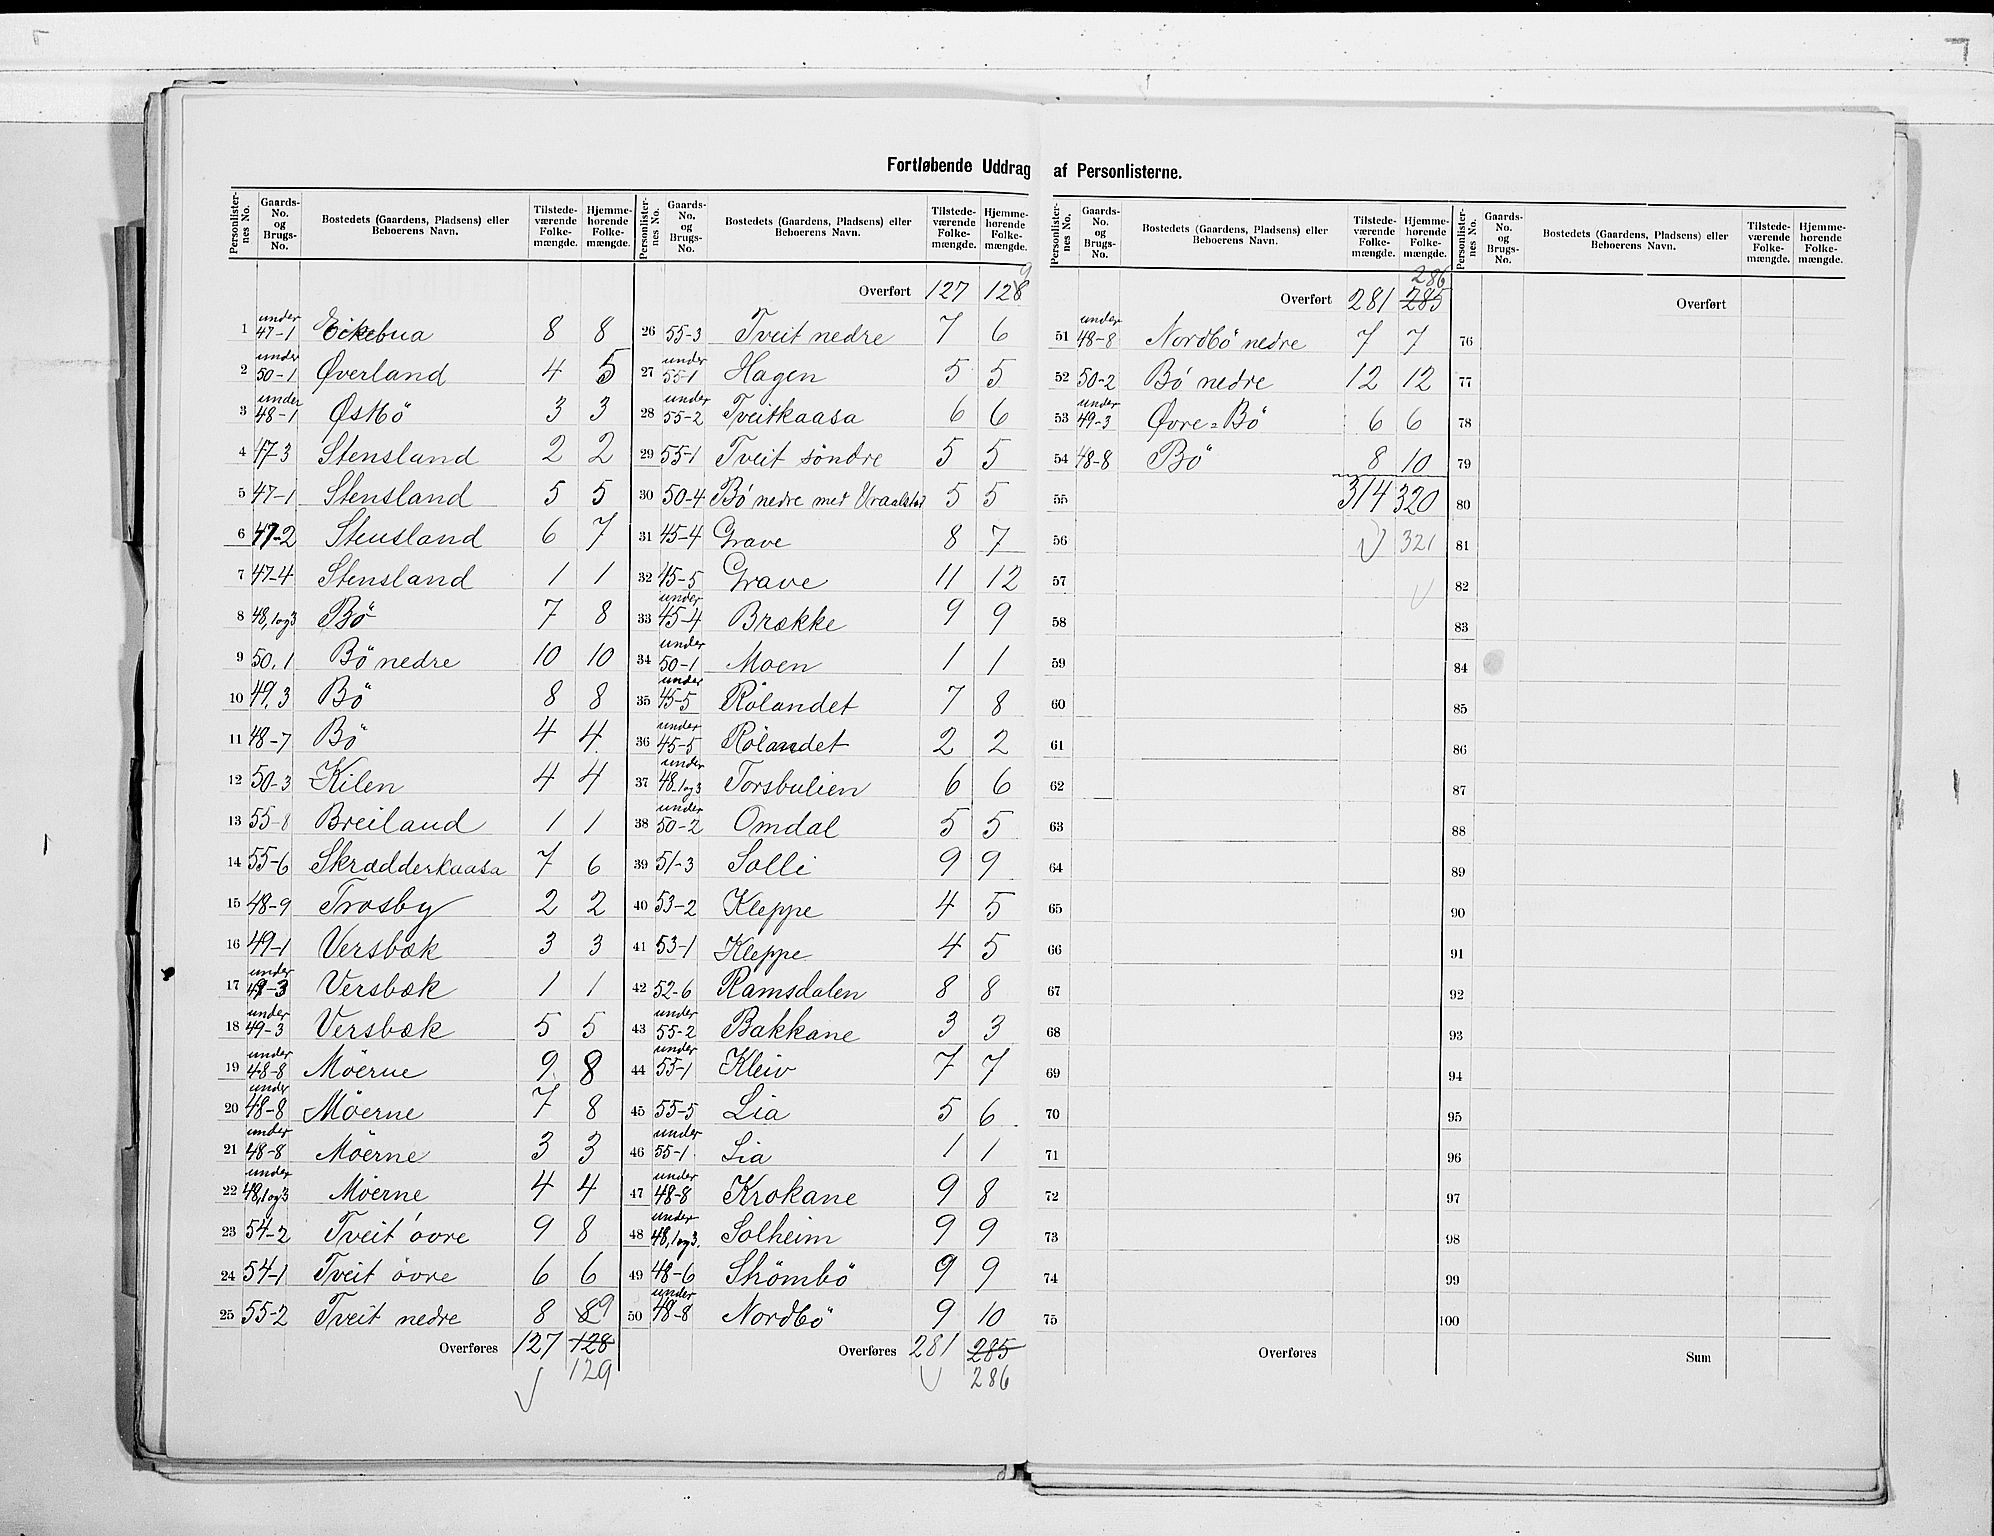 Fortløbende Uddrag af Personlisterne.
Personlister-nes No. | Gaards-No. og Brugs-No. | Bostedets (Gaardens, Pladsens) eller Beboerens Navn. | Tilstede-værende Folke-mængde. | Hjemme-hørende Folke-mængde.
1 under 47-1 Eikebua 8 8
2 under 50-1 Øverland 4 5
3 under 48-1 Østbö 3 3
4 47-3 Stensland 2 2
5 47-1 Stensland 5 5
6 47-2 Stensland 6 7
7 47-4 Stensland 1 1
8 48,1og3 Bö 7 8
9 50,1 Bö nedre 10 10
10 49,3 Bö 8 8
11 48-7 Bö 4 4
12 50-3 Kilen 4 4
13 55-8 Breiland 1 1
14 55-6 Skrædderkaasa 7 6
15 48-9 Trosby 2 2
16 49-1 Versbæk 3 3
17 under 49-3 Versbæk 1 1
18 under 49-3 Versbæk 5 5
19 under 48-8 Möerne 9 8
20 under 48-8 Möerne 7 8
21 under 48-8 Möerne 3 3
22 under 48,1og3 Möerne 4 4
23 54-2 Tveit övre 9 8
24 54-1 Tveit övre 6 6
25 55-2 Tveit nedre 8 8 9
Overføres 127 128
129
Personlister-nes No. | Gaards-No. og Brugs-No. | Bostedets (Gaardens, Pladsens) eller Beboerens Navn. | Tilstede-værende Folke-mængde. | Hjemme-hørende Folke-mængde.
9
Overført 127 128
26 55-3 Tveit nedre 7 6
27 under 55-1 Hagen 5 5
28 under 55-2 Tveitkaasa 6 6
29 55-1 Tveit söndre 5 5
30 50-4 Bö nedre med Uraalstad 5 5
31 45-4 Grave 8 7
32 45-5 Grave 11 12
33 under 45-4 Brække 9 9
34 under 50-1 Moen 1 1
35 under 45-5 Rölandet 7 8
36 under 45-5 Rölandet 2 2
37 under 48,1og3 Torsbulien 6 6
38 under 50-2 Omdal 5 5
39 51-3 Solli 9 9
40 53-2 Kleppe 4 5
41 53-1 Kleppe 4 5
42 52-6 Ramsdalen 8 8
43 under 55-2 Bakkane 3 3
44 under 55-1 Kleiv 7 7
45 55-5 Lia 5 6
46 under 55-1 Lia 1 1
47 under 48-8 Krokane 9 8
48 under 48,1og3. Solheim 9 9
49 48-6 Strömbö 9 9
50 under 48-8 Nordbö 9 10
Overføres 281 285
286
Personlister-nes No. | Gaards-No. og Brugs-No. | Bostedets (Gaardens, Pladsens) eller Beboerens Navn. | Tilstede-værende Folke-mængde. | Hjemme-hørende Folke-mængde.
286
Overført 281 285
51 under 48-8 Nordbö nedre 7 7
52 50-2 Bö nedre 12 12
53 under 49-3 Øvre=Bö 6 6
54 48-8 Bö 8 10
55 314 320
56 321
57
58
59
60
61
62
63
64
65
66
67
68
69
70
71
72
73
74
75
Overføres
Personlister-nes No. | Gaards-No. og Brugs-No. | Bostedets (Gaardens, Pladsens) eller Beboerens Navn. | Tilstede-værende Folke-mængde. | Hjemme-hørende Folke-mængde.
Overført
76
77
78
79
80
81
82
83
84
85
86
87
88
89
90
91
92
93
94
95
96
97
98
99
100
Sum